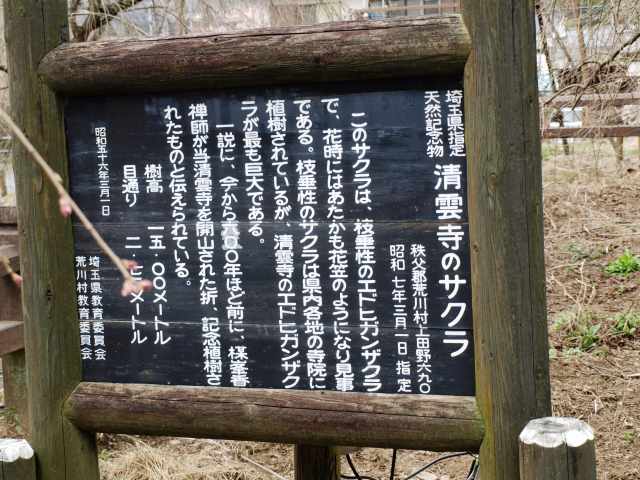 埼玉県指定
天然記念物
清雲寺のサクラ
秩父郡荒川村上田野六九〇
昭和 七年三月一日 指定
このサクラは、枝垂性のエドヒガンザクラ
で、花時にはあたかも花笠のようになり見事
である。枝垂性のサクラは県内各地の寺院に
植樹されているが、清雲寺のエドヒガンザク
ラが最も巨大である。
一説に、今から六〇〇年ほど前に、楳峯香
禅師が当清雲寺を開山された折、記念植樹さ
れたものと伝えられている。
樹高 一五・〇〇メートル
目通り 二・メートル
昭和五十六年三月一日
埼玉県教育委員会
荒川村教育委員会